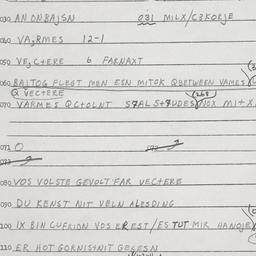 030 AN ONBAJSN 031 MILX/CZKORJE
040 VA,RMES 12-1
050 VE,CTERE 6 FARNAXT
060 BAITOG FLEGT MEN ESN MITOK QBETWEEN VAMES
Q VECTERE (268
070 VARMES QCTOLNT S7AL S+7UDES NOX MITX
071 O 072
073
080 VOS VOLSTE GEVOLT FAR VECTERE
090 DU KENST NIT VELN ALESDING
100 IX BIN CUFRION VOS EREST/ES TUT MIR HANOJE
110 ER HOT GORNISTNIT GEGESN